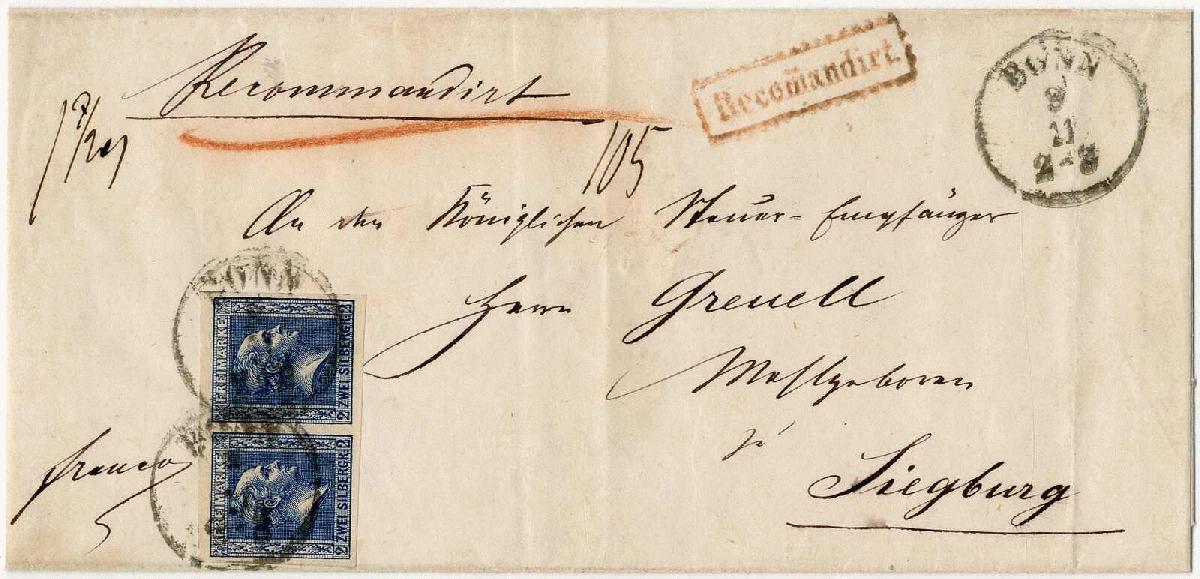 Recommandirt
Recomandirt
BONN
8/
11
2-3
105
An den Königlichen Steuer-Empfänger
Herrn Greuell
Wohlgeboren
zu
Siegburg
BONN
FREIMARKE
2 ZWEI SILBERGR. 2
FREIMARKE
2 ZWEI SILBERGR. 2
franco